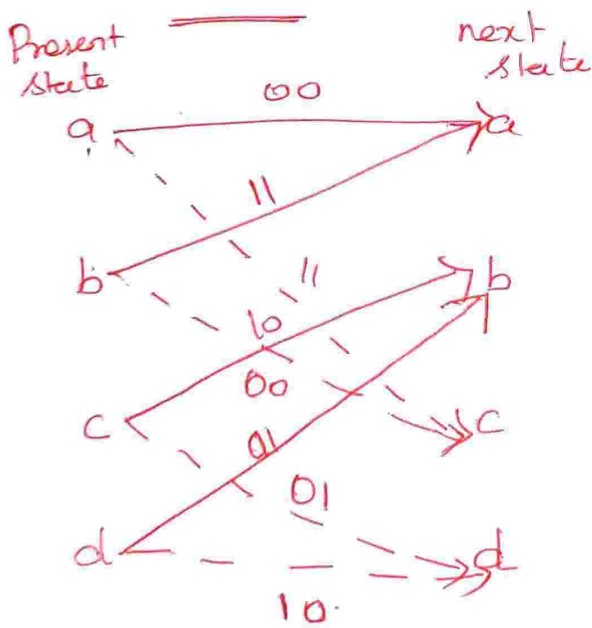 Present state
next state
00
a
a
11
b
11
b
10
00
c
c
01
01
d
d
10.